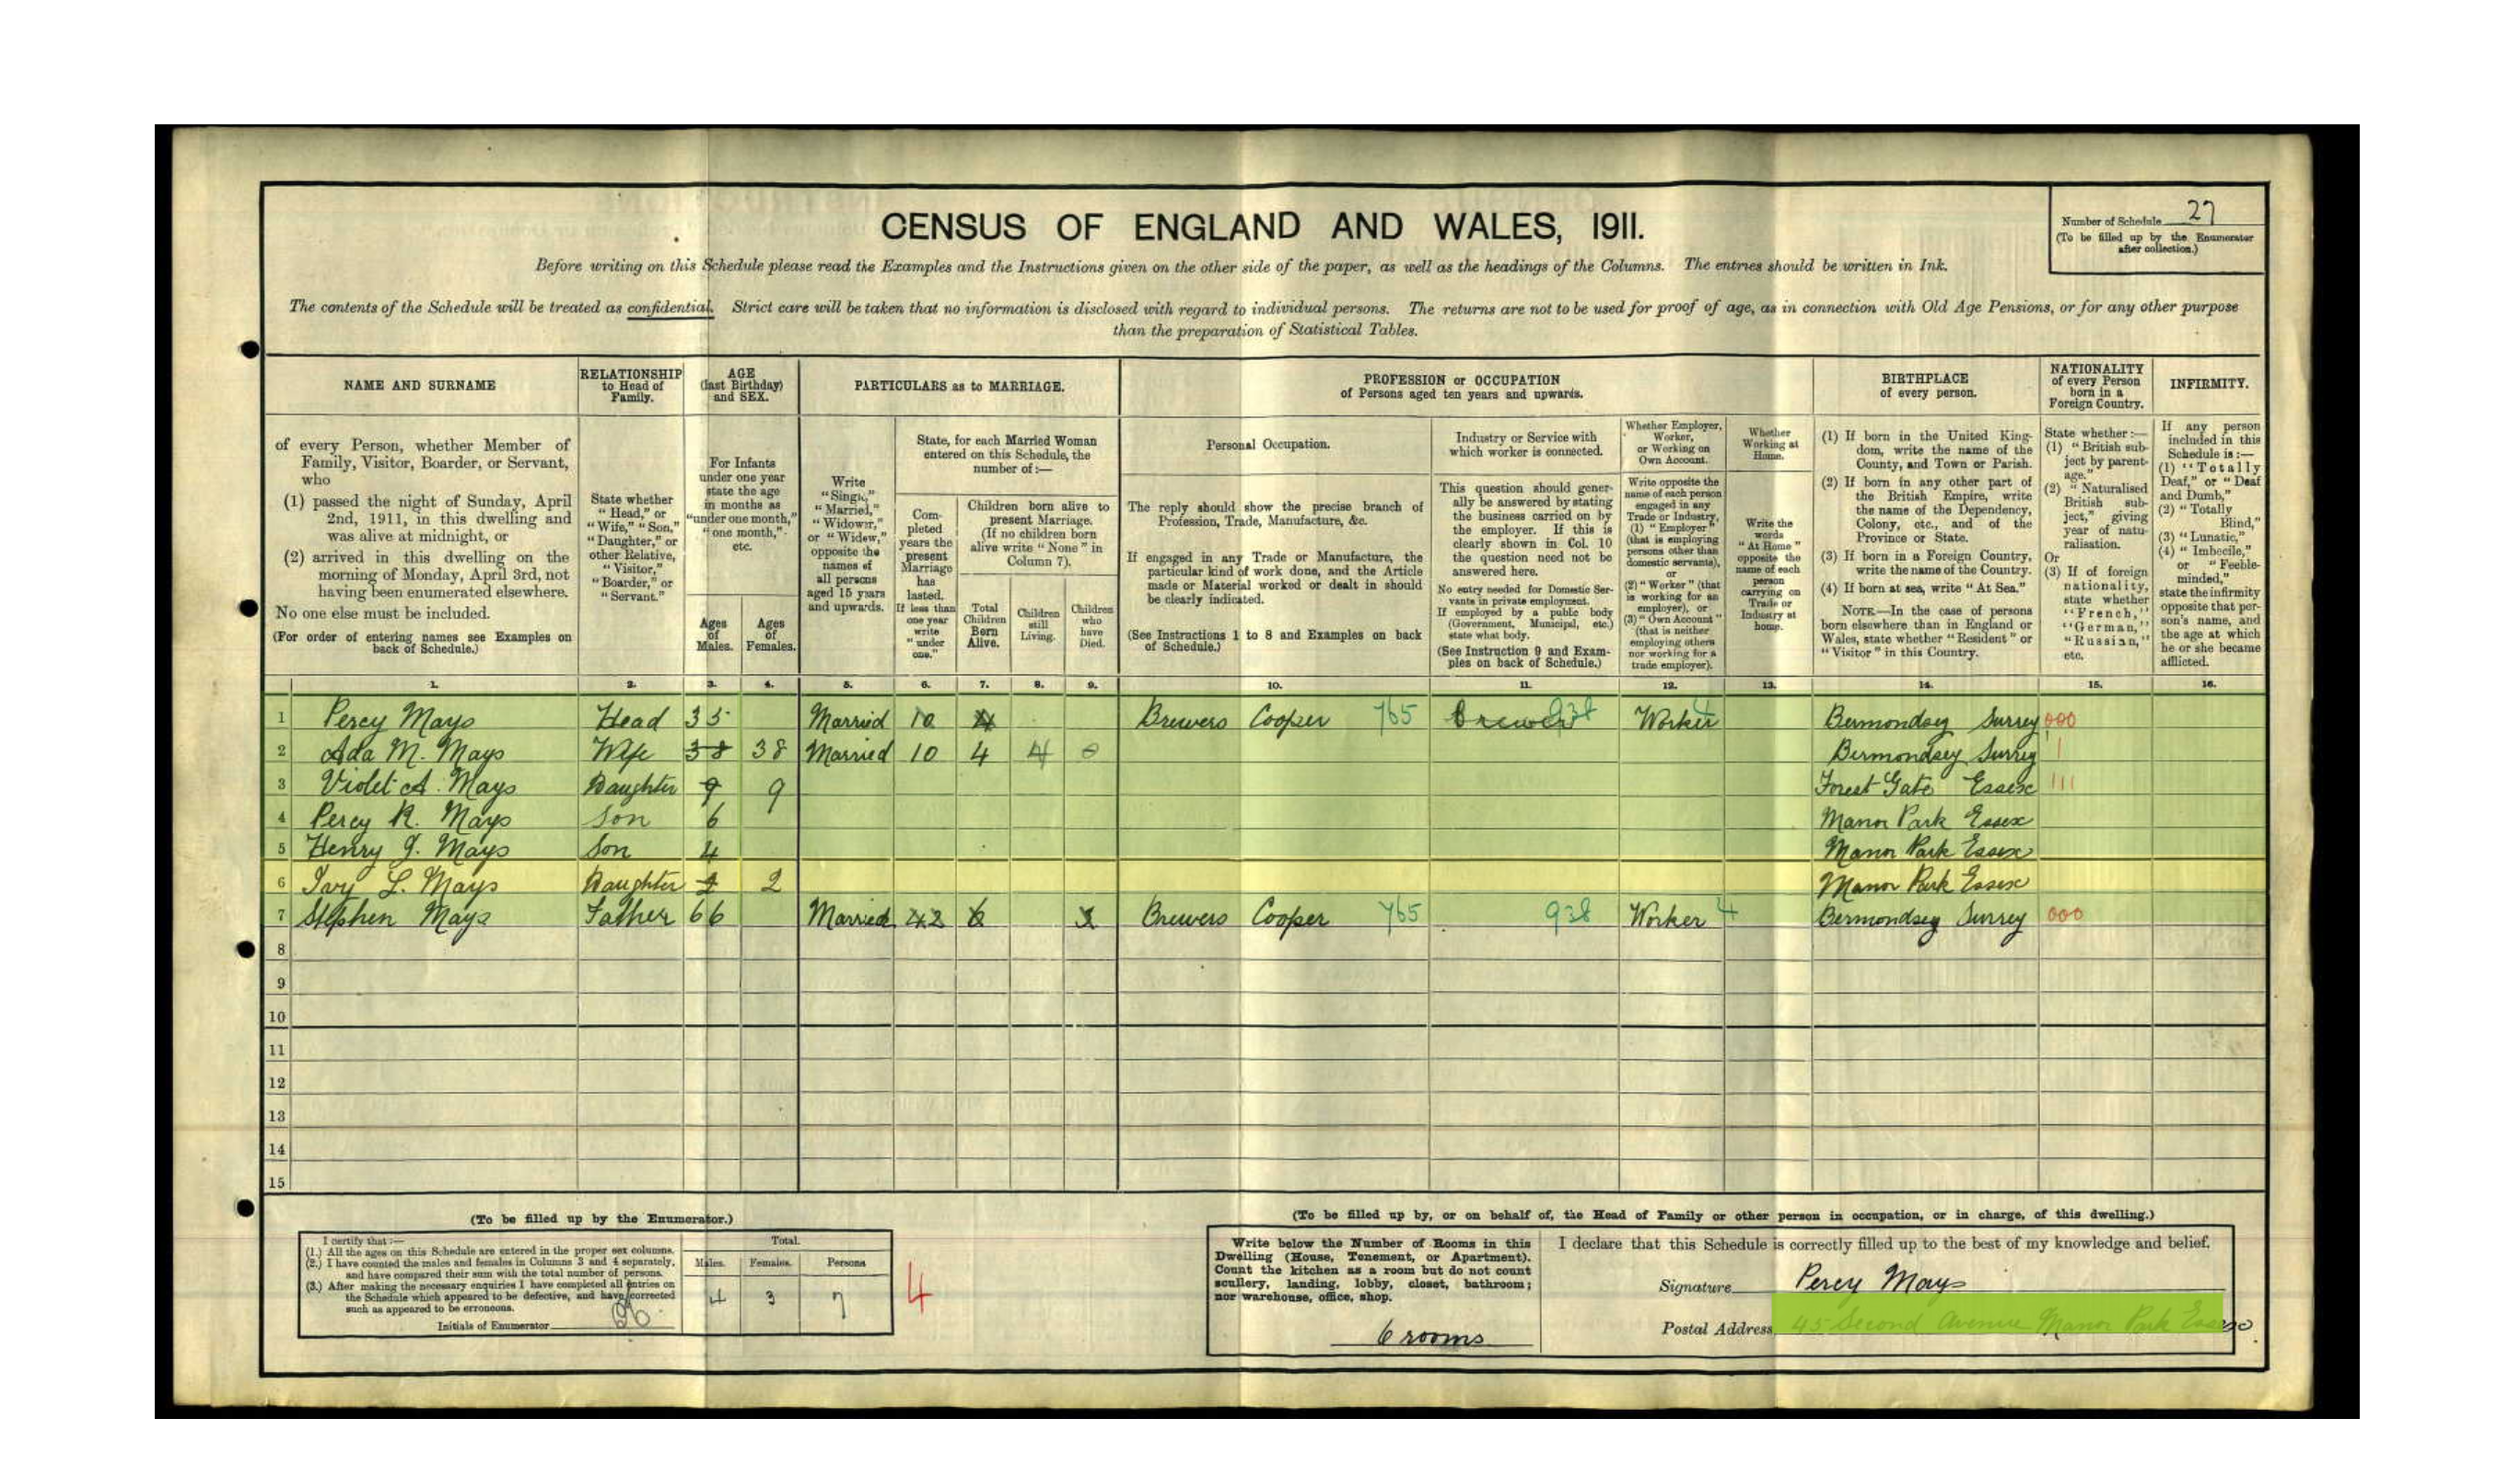 CENSUS OF ENGLAND AND WALES, 1911.
Number of Schedule 27
(To be filled up by the Enumerator after collection.)
Before writing on this Schedule please read the Examples and the Instructions given on the other side of the paper, as well as the headings of the Columns. The entries should be written in Ink.
The contents of the Schedule will be treated as confidential. Strict care will be taken that no information is disclosed with regard to individual persons. The returns are not to be used for proof of age, as in connection with Old Age Pensions, or for any other purpose
than the preparation of Statistical Tables.
NAME AND SURNAME
of every Person, whether Member of Family, Visitor, Boarder, or Servant, who
(1) passed the night of Sunday, April 2nd, 1911, in this dwelling and was alive at midnight, or
(2) arrived in this dwelling on the morning of Monday, April 3rd, not having been enumerated elsewhere.
No one else must be included.
(For order of entering names see Examples on back of Schedule.)
RELATIONSHIP to Head of Family.
State whether "Head," or "Wife," "Son," "Daughter," or other Relative, "Visitor," "Boarder," or "Servant."
AGE (last Birthday) and SEX.
For Infants under one year state the age in months as "under one month," "one month," etc.
Ages of Males.
Ages of Females.
PARTICULARS as to MARRIAGE.
Write "Single," "Married," "Widower," or "Widow," opposite the names of all persons aged 15 years and upwards.
State, for each Married Woman entered on this Schedule, the number of:—
Completed years the present Marriage has lasted. If less than one year write "under one."
Children born alive to present Marriage. (If no children born alive write "None" in Column 7).
Total Children Born Alive.
Children still Living.
Children who have Died.
PROFESSION or OCCUPATION
of Persons aged ten years and upwards.
Personal Occupation.
The reply should show the precise branch of Profession, Trade, Manufacture, &c.
If engaged in any Trade or Manufacture, the particular kind of work done, and the Article made or Material worked or dealt in should be clearly indicated.
(See Instructions 1 to 8 and Examples on back of Schedule.)
Industry or Service with which worker is connected.
This question should generally be answered by stating the business carried on by the employer. If this is clearly shown in Col. 10 the question need not be answered here.
No entry needed for Domestic Servants in private employment. If employed by a public body (Government, Municipal, etc.) state what body.
(See Instruction 9 and Examples on back of Schedule.)
Whether Employer, Worker, or Working on Own Account.
Write opposite the name of each person engaged in any Trade or Industry, (1) "Employer" (that is employing persons other than domestic servants), or (2) "Worker" (that is working for an employer), or (3) "Own Account" (that is neither employing others nor working for a trade employer).
Whether Working at Home.
Write the words "At Home" opposite the name of each person carrying on Trade or Industry at home.
BIRTHPLACE of every person.
(1) If born in the United Kingdom, write the name of the County, and Town or Parish.
(2) If born in any other part of the British Empire, write the name of the Dependency, Colony, etc., and of the Province or State.
(3) If born in a Foreign Country, write the name of the Country.
(4) If born at sea, write "At Sea."
NOTE.—In the case of persons born elsewhere than in England or Wales, state whether "Resident" or "Visitor" in this Country.
NATIONALITY of every Person born in a Foreign Country.
State whether:— (1) "British subject by parentage." (2) "Naturalised British subject," giving year of naturalisation. Or (3) If of foreign nationality, state whether "French," "German," "Russian," etc.
INFIRMITY.
If any person included in this Schedule is:— (1) "Totally Deaf," or "Deaf and Dumb," (2) "Totally Blind," (3) "Lunatic," (4) "Imbecile," or "Feeble-minded," state the infirmity opposite that person's name, and the age at which he or she became afflicted.
1. 2. 3. 4. 5. 6. 7. 8. 9. 10. 11. 12. 13. 14. 15. 16.
1 Percy Mays Head 35 Married 10 4 Brewers Cooper 765 Brewer 938 Worker 4 Bermondsey Surrey 000
2 Ada M. Mays Wife 38 38 Married 10 4 4 0 Bermondsey Surrey
3 Violet A. Mays Daughter 9 9 Forest Gate Essex
4 Percy R. Mays Son 6 Manor Park Essex
5 Henry J. Mays Son 4 Manor Park Essex
6 Ivy L. Mays Daughter 2 2 Manor Park Essex
7 Stephen Mays Father 66 Married 42 6 3 Brewers Cooper 765 938 Worker 4 Bermondsey Surrey 000
8
9
10
11
12
13
14
15
(To be filled up by the Enumerator.)
I certify that:—
(1.) All the ages on this Schedule are entered in the proper sex columns.
(2.) I have counted the males and females in Columns 3 and 4 separately, and have compared their sum with the total number of persons.
(3.) After making the necessary enquiries I have completed all entries on the Schedule which appeared to be defective, and have corrected such as appeared to be erroneous.
Initials of Enumerator
Total.
Males. Females. Persons
4 3 7
4
(To be filled up by, or on behalf of, the Head of Family or other person in occupation, or in charge, of this dwelling.)
Write below the Number of Rooms in this Dwelling (House, Tenement, or Apartment). Count the kitchen as a room but do not count scullery, landing, lobby, closet, bathroom; nor warehouse, office, shop.
6 rooms
I declare that this Schedule is correctly filled up to the best of my knowledge and belief.
Signature Percy Mays
Postal Address 45 Second Avenue Manor Park Essex